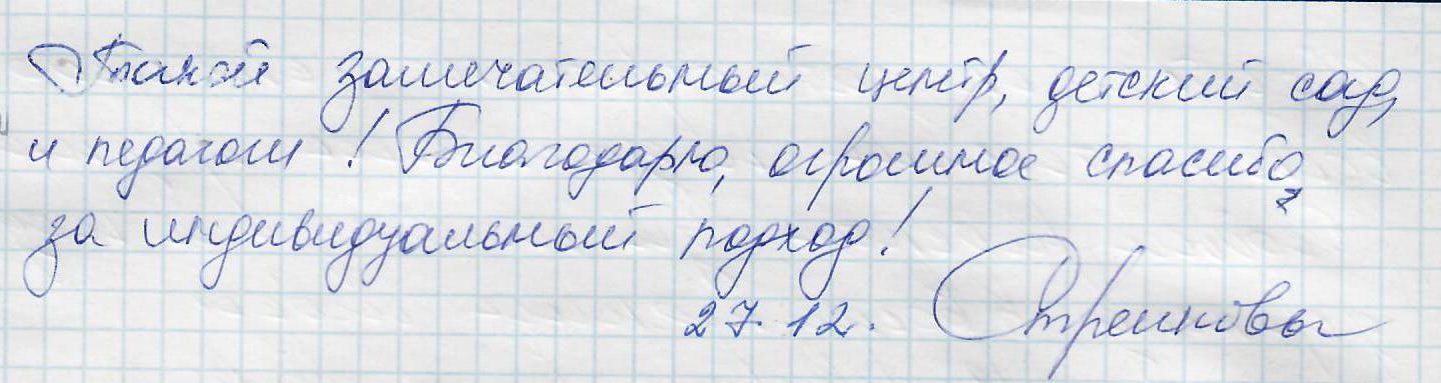 Такой замечательный центр, детский сад,
и педагоги! Благодарю, огромное спасибо,
за индивидуальный подход!
27.12. Стрелковы